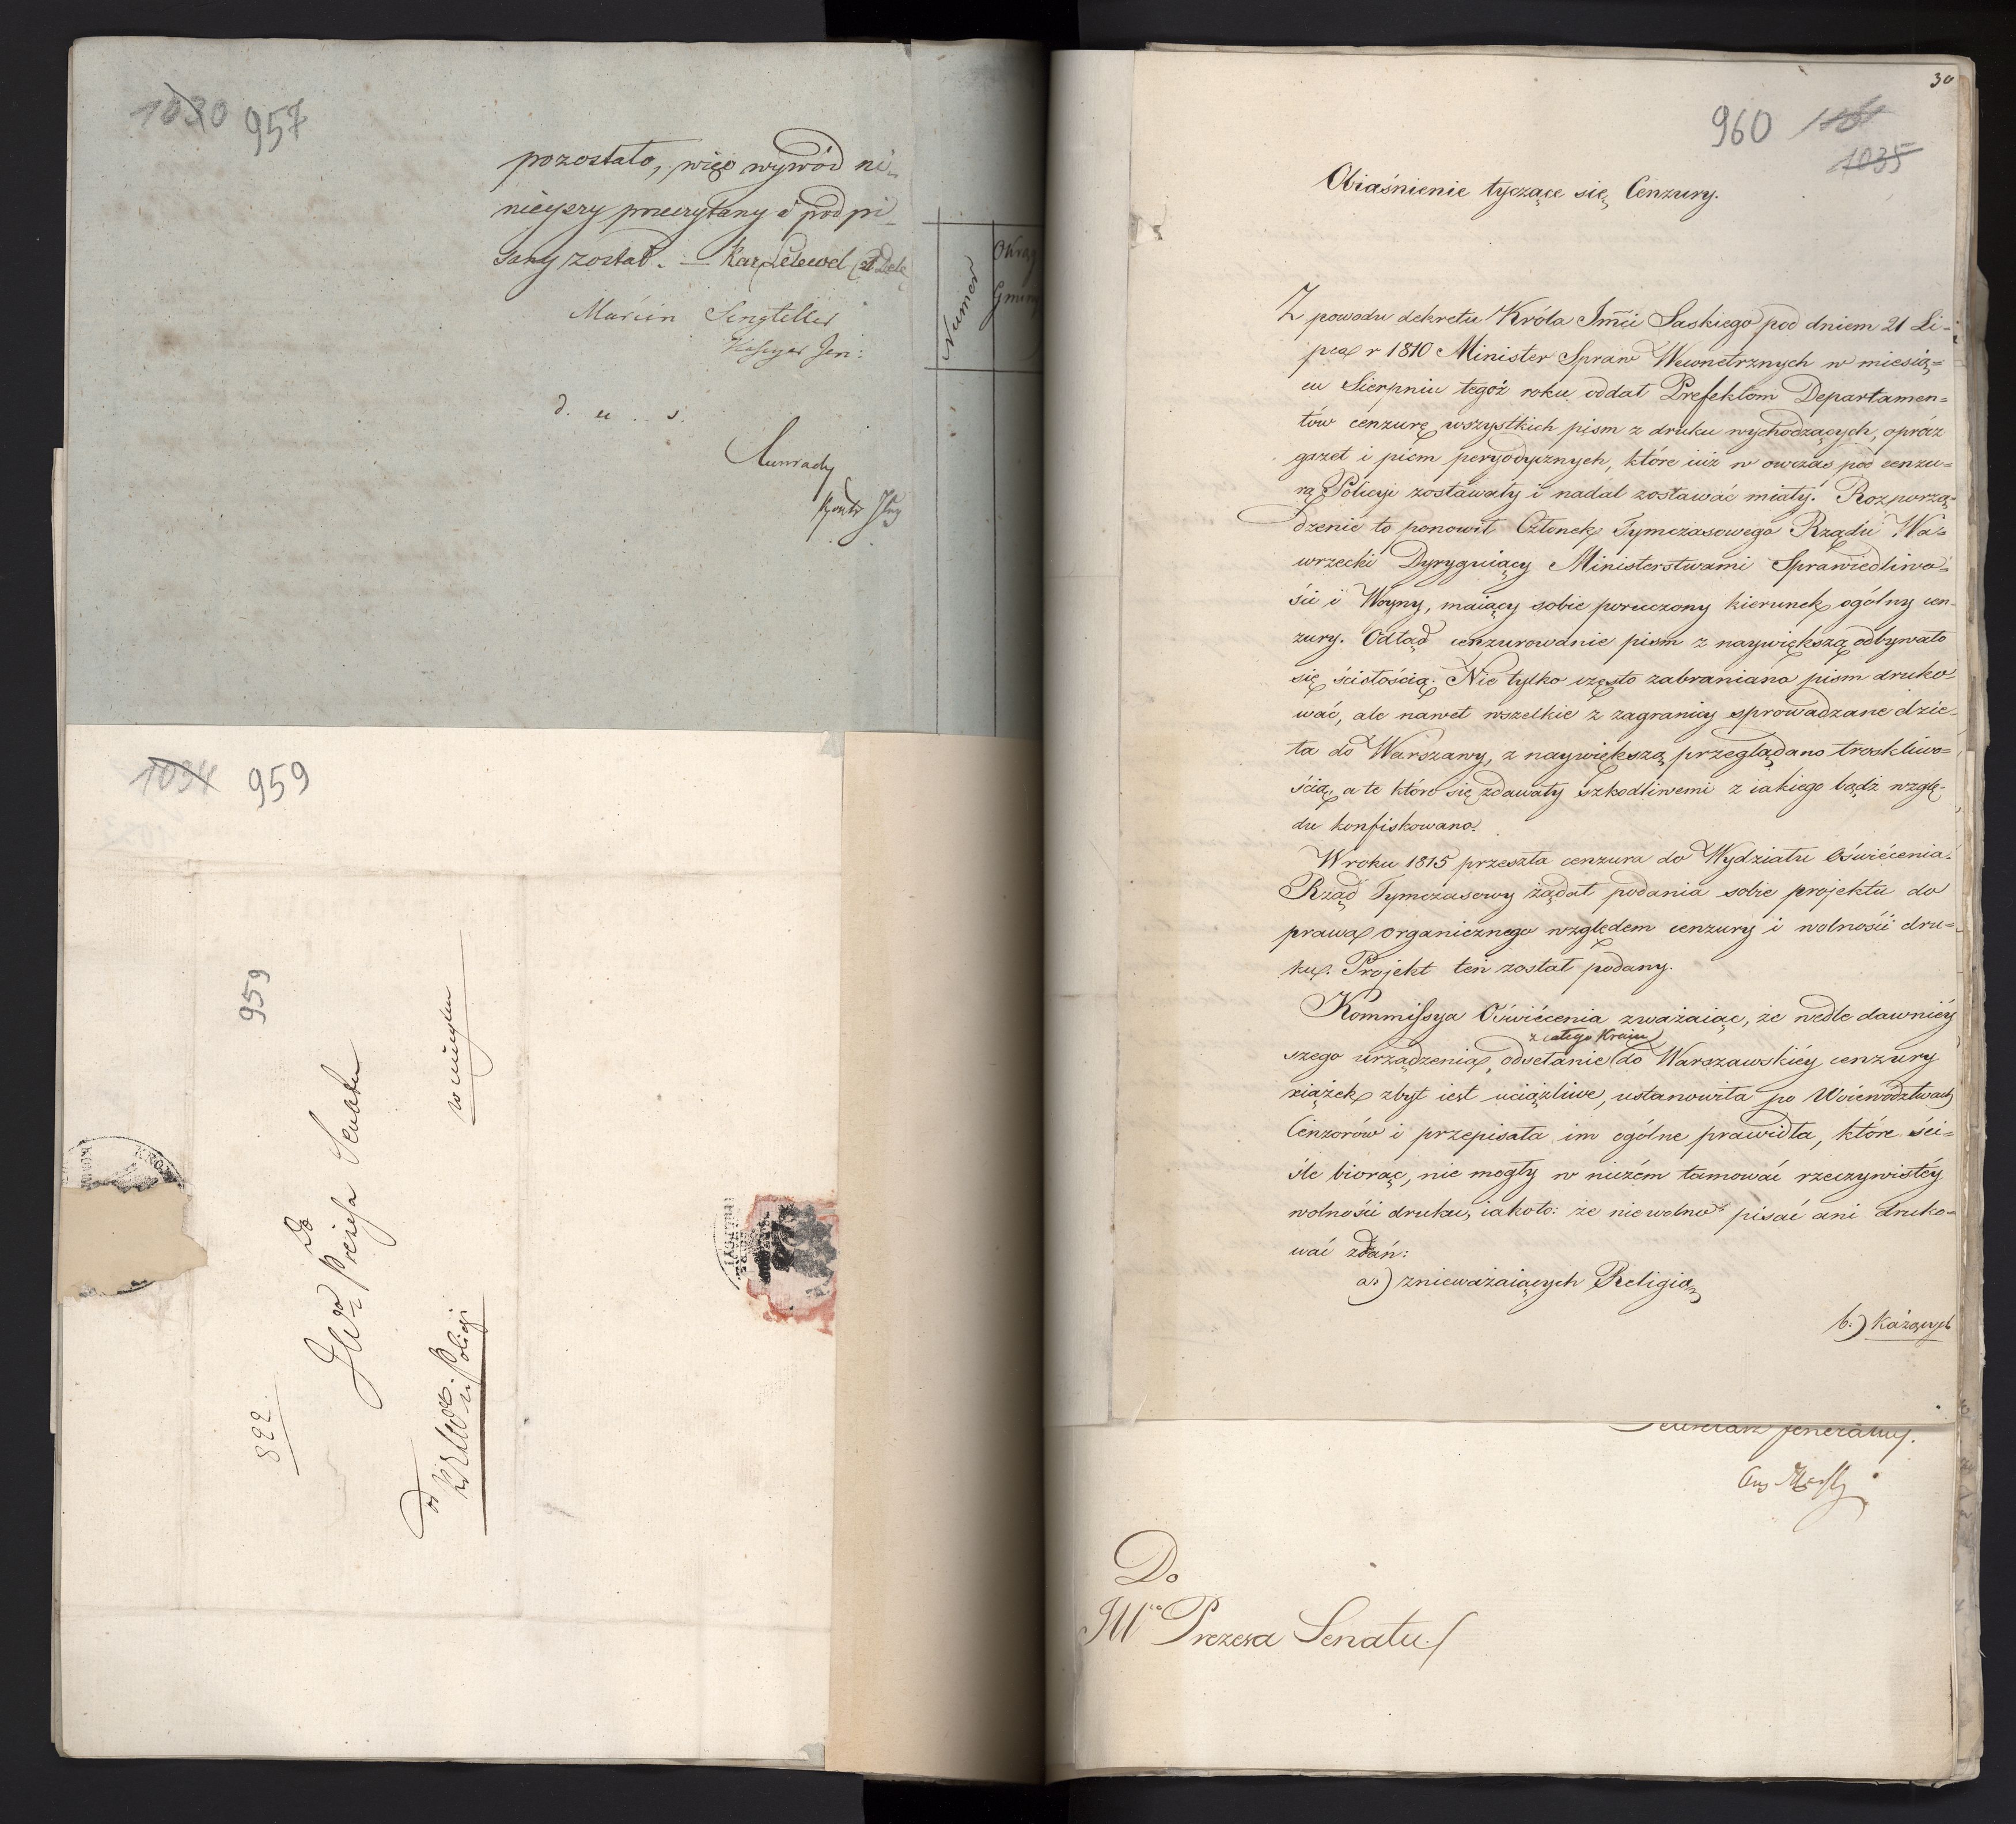 1030 957
pozostało, więc wywód ni-
nieyszy przeczytany i podpi
sany został. — Kar. Lelewel
Marcin Sengteller
d. u. s.
Numer
Okrąg
Gmin
1034 959
959
822.
Do
JWgo Prezesa Senatu
w mieyscu
od
Policyi
30
960
1035
Obiaśnienie tyczące się Cenzury.
Z powodu dekretu Króla Jmći Saskiego pod dniem 21 Li=
pca r 1810 Minister Spraw Wewnetrznych w miesią=
cu Sierpniu tegoż roku oddał Prefektom Departamen=
tów cenzurę wszystkich pism z druku wychodzących, oprócz
gazet i piśm peryodycznych, które iuż w owczas pod cenzu=
rą Policyi zostawały i nadal zostawać miały. Rozporzą=
dzenie to ponowił Członek Tymczasowego Rządu Wa=
wrzecki Dyryguiący Ministerstwami Sprawiedliwo=
ści i Woyny, maiący sobie poruczony kierunek ogólny cen=
zury. Odtąd cenzurowanie pism z naywiększą odbywało
się ścisłością. Nie tylko często zabraniano pism druko=
wać, ale nawet wszelkie z zagranicy sprowadzane dzie=
ła do Warszawy, z naywiększą przeglądano troskliwo=
ścią, a te które się zdawały szkodliwemi z iakiego bądź wzglę-
du konfiskowano.
W roku 1815 przeszła cenzura do Wydziału Oświécenia.
Rząd Tymczasowy żądał podania sobie projektu do
prawa organicznego względem cenzury i wolności dru=
ku. Projekt ten został podany.
Kommissya Oświécenia zważaiąc, że wedle dawniéy
z całego Kraiu
szego urządzenia, odsełanie do Warszawskiéy cenzury
xiążek zbyt iest uciążliwe, ustanowiła po Woiewództwach
Cenzorów i przepisała im ogólne prawidła, które ści=
śle biorąc, nie mogły w niczém tamować rzeczywistéy
wolności druku, iakoto: że niewolno pisać ani druko=
wać zdań:
a.) znieważaiących Religią,
b.) każących
Sekretarz Jeneralny.
Do
JW Prezesa Senatu.